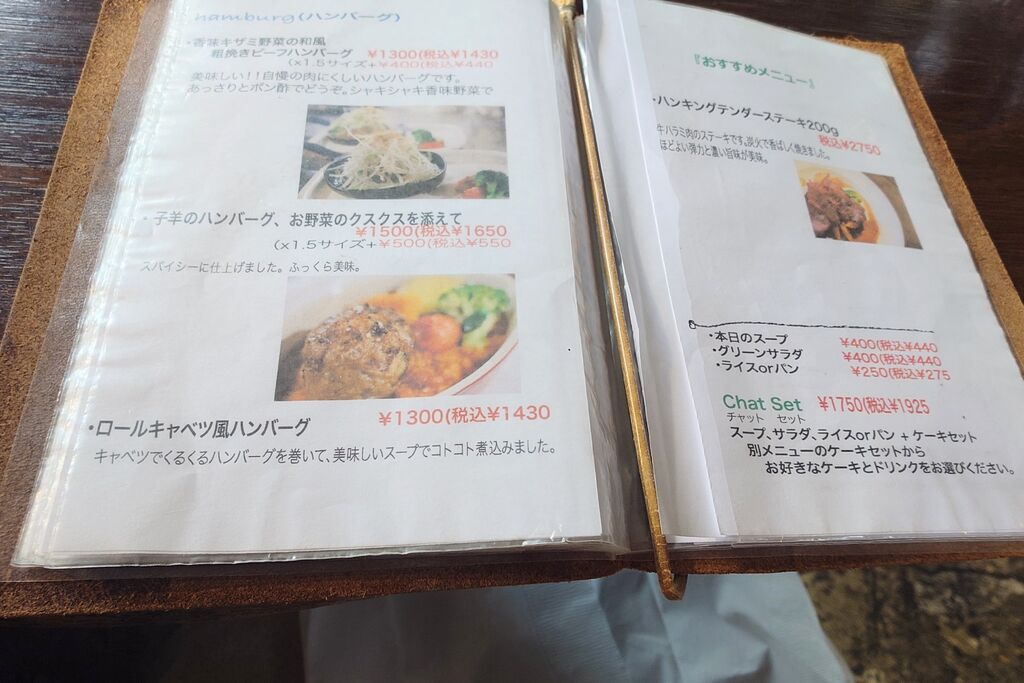 hamburg(ハンバーグ)
・香味キザミ野菜の和風
粗挽きビーフハンバーグ ¥1300(税込¥1430
(x1.5サイズ+¥400(税込¥440
美味しい!!自慢の肉にくしいハンバーグです。
あっさりとポン酢でどうぞ。シャキシャキ香味野菜で
・子羊のハンバーグ、お野菜のクスクスを添えて
¥1500(税込¥1650
(x1.5サイズ+¥500(税込¥550
スパイシーに仕上げました。ふっくら美味。
¥1300(税込¥1430
・ロールキャベツ風ハンバーグ
キャベツでくるくるハンバーグを巻いて、美味しいスープでコトコト煮込みました。
『おすすめメニュー』
・ハンキングテンダーステーキ200g
税込¥2750
牛ハラミ肉のステーキです。炭火で香ばしく焼きました。
ほどよい弾力と濃い旨味が美味。
・本日のスープ ¥400(税込¥440
・グリーンサラダ ¥400(税込¥440
・ライスorパン ¥250(税込¥275
Chat Set ¥1750(税込¥1925
チャット セット
スープ、サラダ、ライスorパン + ケーキセット
別メニューのケーキセットから
お好きなケーキとドリンクをお選びください。